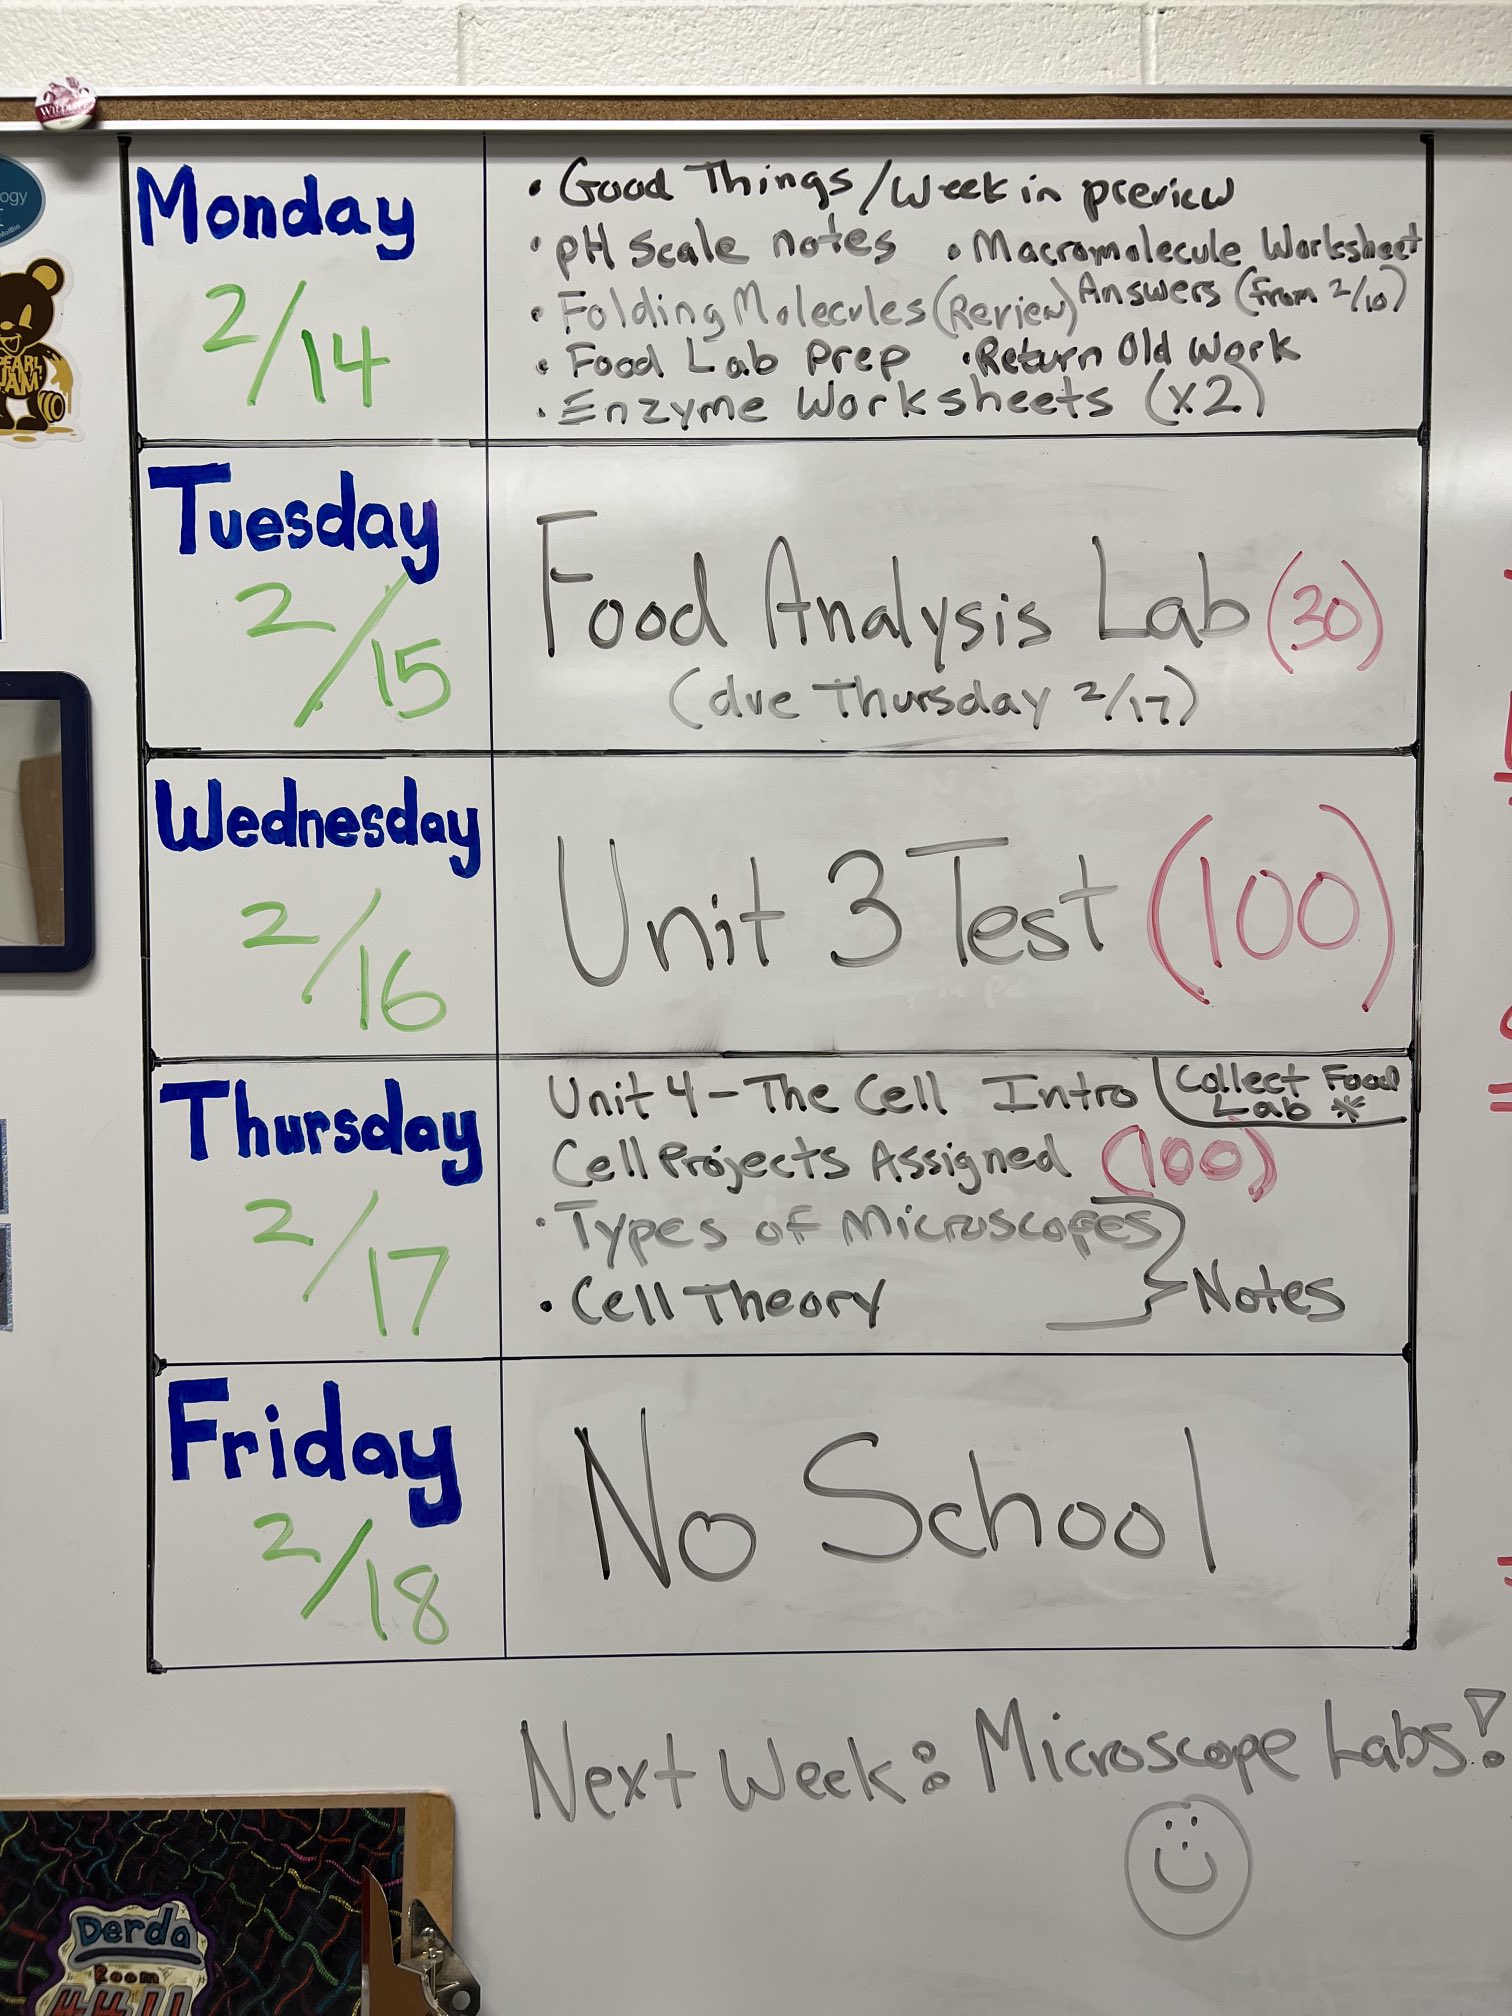 Monday
2/14
• Good Things/Week in preview
• pH Scale notes • Macromolecule Worksheet
Answers (from 2/10)
• Folding Molecules (Review)
• Food Lab Prep • Return Old Work
• Enzyme Worksheets (x2)
Tuesday
2/15
Food Analysis Lab (30)
(due Thursday 2/17)
Wednesday
2/16
Unit 3 Test (100)
Thursday
2/17
Unit 4 - The Cell Intro
Collect Food
Lab *
Cell Projects Assigned (100)
• Types of Microscopes
• Cell Theory
} Notes
Friday
2/18
No School
Next Week: Microscope Labs!
PEARL
JAM
Derda
Room